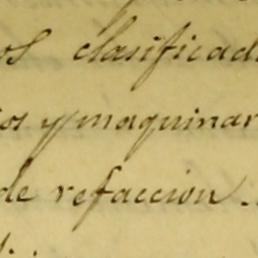 os clasificad
ios y maquinar
de refaccion.